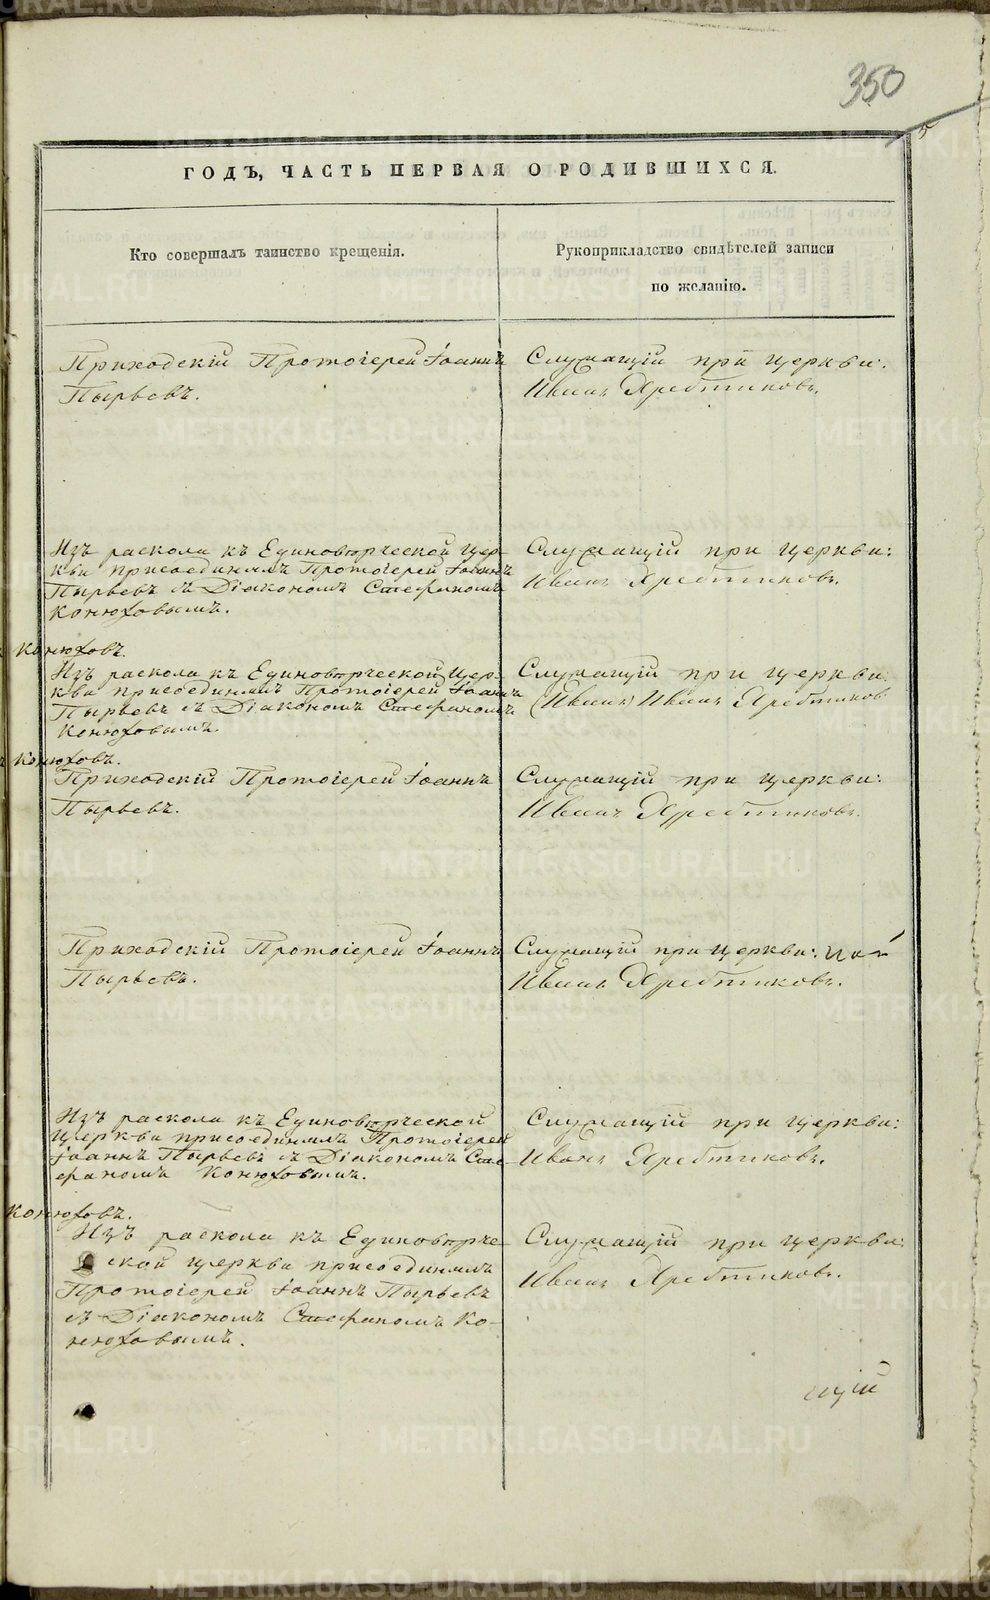 350
5
ГОДЪ, ЧАСТЬ ПЕРВАЯ О РОДИВШИХСЯ.
Кто совершалъ таинство крещенія.
Рукоприкладство свидѣтелей записи
по желанію.
Приходскій Протоіерей Іоаннъ
Пырьевъ.
Служащій при церкви:
Иванъ Ястребтиковъ.
Изъ раскола къ Единовѣрческой Цер-
кви присоединялъ Протоіерей Іоаннъ
Пырьевъ съ Діакономъ Стефаномъ
Конюховымъ.
Служащій при церкви:
Иванъ
Конюховъ.
Изъ раскола къ Единовѣрческой Цер-
кви присоединялъ Протоіерей Іоаннъ
Пырьевъ съ Діакономъ Стефаномъ
Конюховымъ.
Служащій при церкви:
(Иванъ) Иванъ
Конюховъ.
Приходскій Протоіерей Іоаннъ
Пырьевъ.
Служащій при церкви:
Иванъ
Приходскій Протоіерей Іоаннъ
Пырьевъ.
Служащій при церкви:
Иванъ
Изъ раскола къ Единовѣрческой
Церкви присоединялъ Протоіерей
Іоаннъ Пырьевъ съ Діакономъ Сте-
фаномъ Конюховымъ.
Служащій при церкви:
Иванъ
Конюховъ.
Изъ раскола къ Единовѣрче-
ской церкви присоединялъ
Протоіерей Іоаннъ Пырьевъ
съ Діакономъ Стефаномъ Ко-
нюховымъ.
Служащій при церкви:
Иванъ
щій
METRIKI.GASO-URAL.RU